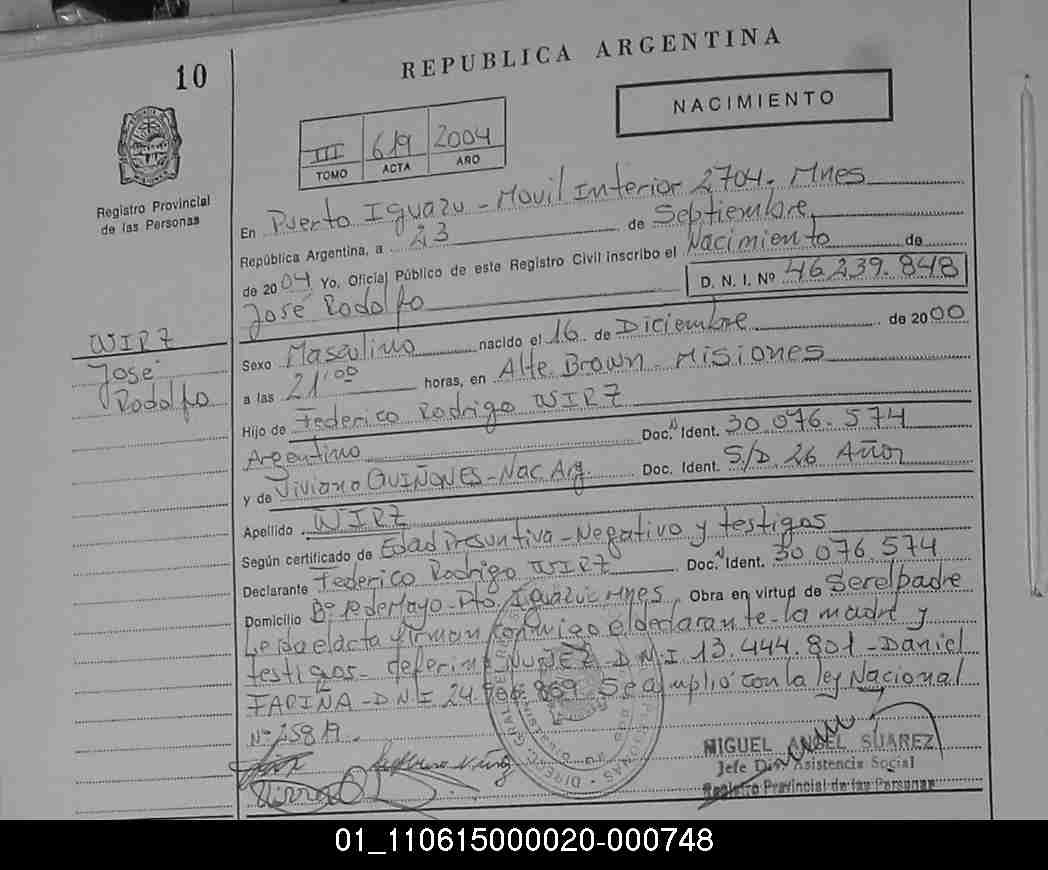 10
REPUBLICA ARGENTINA
NACIMIENTO
III 619 2004
TOMO ACTA AÑO
Registro Provincial
de las Personas
En Puerto Iguazu - Movil Interior 2704. Mnes
República Argentina, a 23 de Septiembre
de 2004 Yo. Oficial Público de este Registro Civil inscribo el Nacimiento de
José Rodolfo D. N. I. Nº 46.239.848
WIRZ
José
Rodolfo
Sexo Masculino nacido el 16 de Diciembre de 2000
a las 21'00 horas, en Alte. Brown - Misiones
Hijo de Federico Rodrigo WIRZ
Argentino Doc. Ident. 30.076.574
y de Viviana QUIÑONES - Nac. Arg. Doc. Ident. S/D. 26 Años
Apellido WIRZ
Según certificado de Edad Presuntiva - Negativo y testigos
Declarante Federico Rodrigo WIRZ Doc. Ident. 30 076.574
Domicilio Bº 1º de Mayo - Pto. Iguazu - Mnes. Obra en virtud de Ser el padre
Leida el acta firman conmigo el declarante - la madre y
testigos - NUÑEZ - D.N.I 13.444.801 - Daniel
FARIÑA - DNI 24. .869. Se amplió con la ley Nacional
Nº 25819.
MIGUEL ANGEL SUAREZ
Jefe Div. Asistencia Social
Registro Provincial de las Personas
01_110615000020-000748